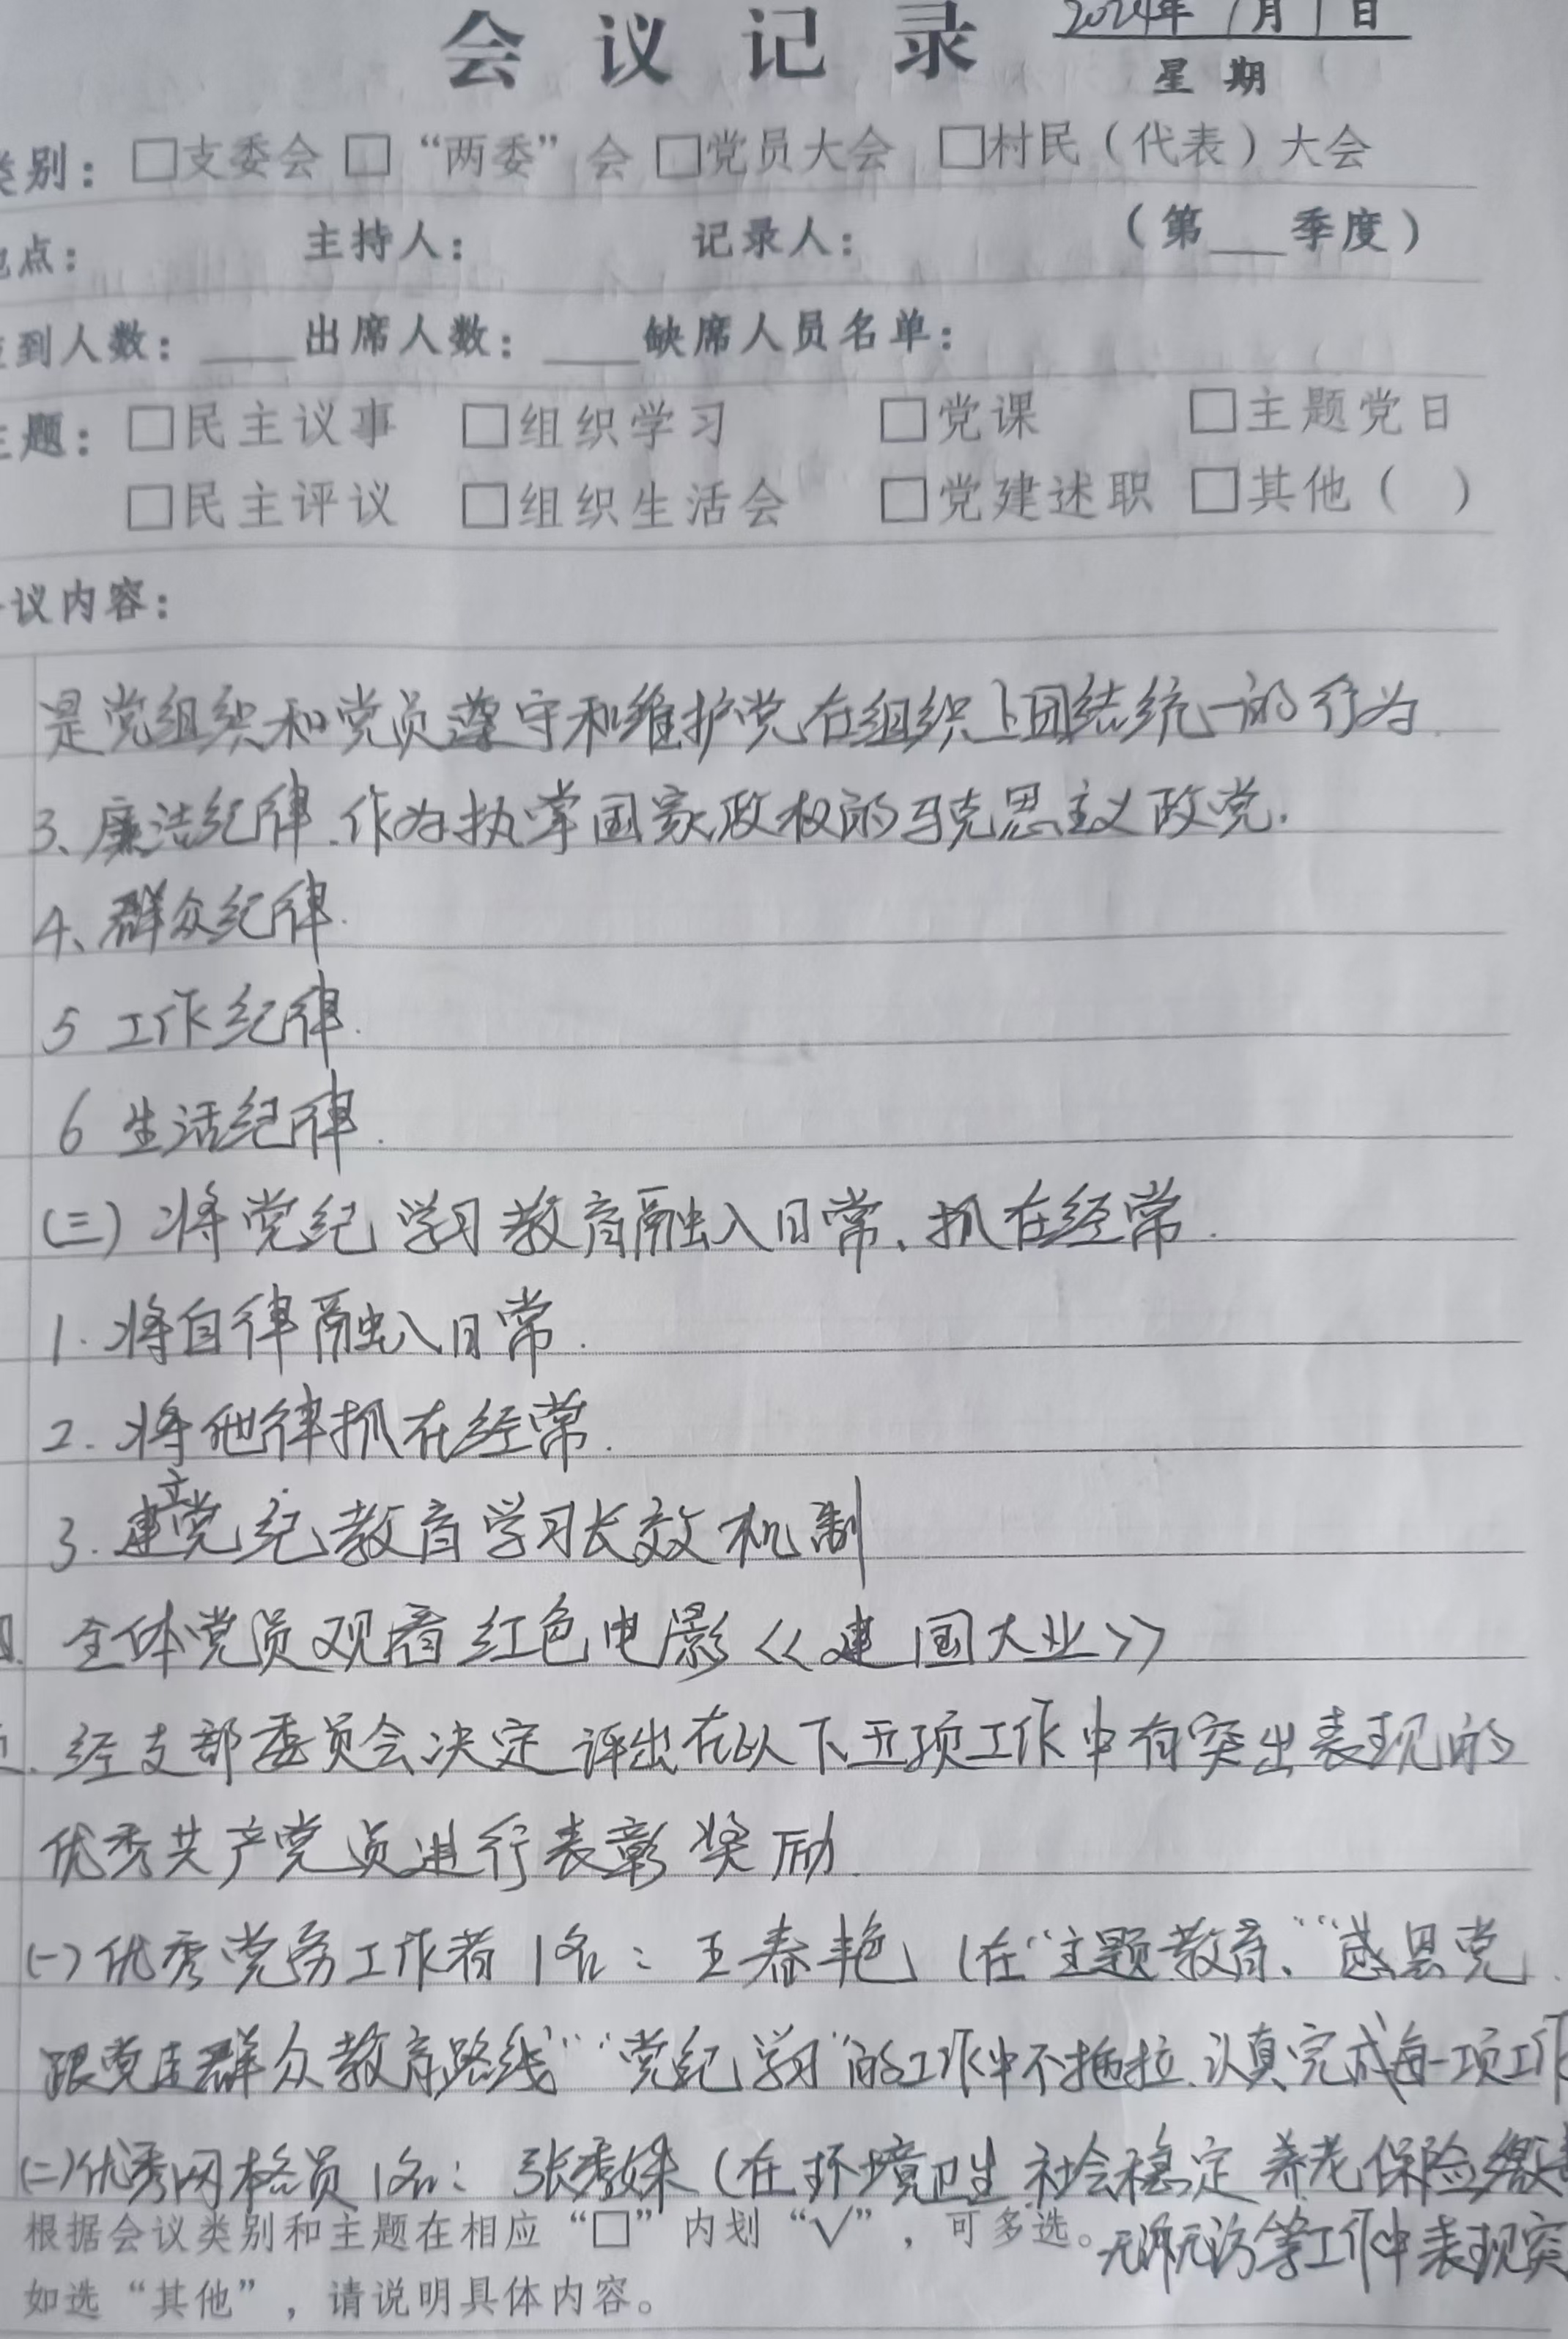 会议记录 2024年7月1日
星期
类别：□支委会 □“两委”会 □党员大会 □村民（代表）大会
地点： 主持人： 记录人： （第___季度）
到人数：____出席人数：____缺席人员名单：
主题：□民主议事 □组织学习 □党课 □主题党日
□民主评议 □组织生活会 □党建述职 □其他（ ）
议内容：
是党组织和党员遵守和维护党在组织上团结统一的行为.
3、廉洁纪律.作为执掌国家政权的马克思主义政党.
4、群众纪律.
5 工作纪律.
6 生活纪律.
(三) 将党纪学习教育融入日常、抓在经常.
1. 将自律融入日常.
2. 将他律抓在经常.
3. 建立党纪教育学习长效机制
四. 全体党员观看红色电影《建国大业》
五. 经支部委员会决定 评出在以下五项工作中有突出表现的
优秀共产党员进行表彰奖励.
(一) 优秀党务工作者1名：王春艳（在“主题教育、”“感恩党
跟党走群众教育路线”“党纪学习”的工作中不拖拉.认真完成每一项工作
(二)优秀网格员1名：张秀妹（在环境卫生 社会稳定 养老保险缴
根据会议类别和主题在相应“□”内划“√”，可多选。 无诉无访等工作中表现突
如选“其他”，请说明具体内容。